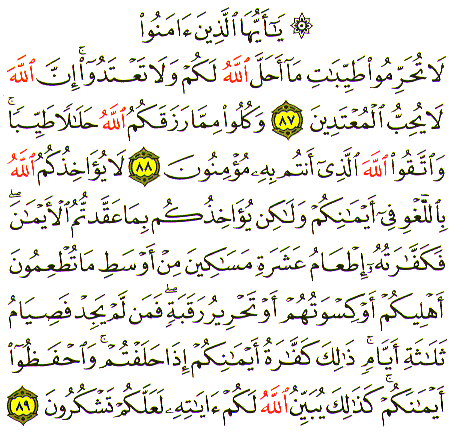 ۞ يَٰٓأَيُّهَا ٱلَّذِينَ ءَامَنُوا۟
لَا تُحَرِّمُوا۟ طَيِّبَٰتِ مَآ أَحَلَّ ٱللَّهُ لَكُمْ وَلَا تَعْتَدُوٓا۟ ۚ إِنَّ ٱللَّهَ
لَا يُحِبُّ ٱلْمُعْتَدِينَ ٨٧ وَكُلُوا۟ مِمَّا رَزَقَكُمُ ٱللَّهُ حَلَٰلًا طَيِّبًا ۚ
وَٱتَّقُوا۟ ٱللَّهَ ٱلَّذِىٓ أَنتُم بِهِۦ مُؤْمِنُونَ ٨٨ لَا يُؤَاخِذُكُمُ ٱللَّهُ
بِٱللَّغْوِ فِىٓ أَيْمَٰنِكُمْ وَلَٰكِن يُؤَاخِذُكُم بِمَا عَقَّدتُّمُ ٱلْأَيْمَٰنَ ۖ
فَكَفَّٰرَتُهُۥٓ إِطْعَامُ عَشَرَةِ مَسَٰكِينَ مِنْ أَوْسَطِ مَا تُطْعِمُونَ
أَهْلِيكُمْ أَوْ كِسْوَتُهُمْ أَوْ تَحْرِيرُ رَقَبَةٍ ۖ فَمَن لَّمْ يَجِدْ فَصِيَامُ
ثَلَٰثَةِ أَيَّامٍ ۚ ذَٰلِكَ كَفَّٰرَةُ أَيْمَٰنِكُمْ إِذَا حَلَفْتُمْ ۚ وَٱحْفَظُوٓا۟
أَيْمَٰنَكُمْ ۚ كَذَٰلِكَ يُبَيِّنُ ٱللَّهُ لَكُمْ ءَايَٰتِهِۦ لَعَلَّكُمْ تَشْكُرُونَ ٨٩